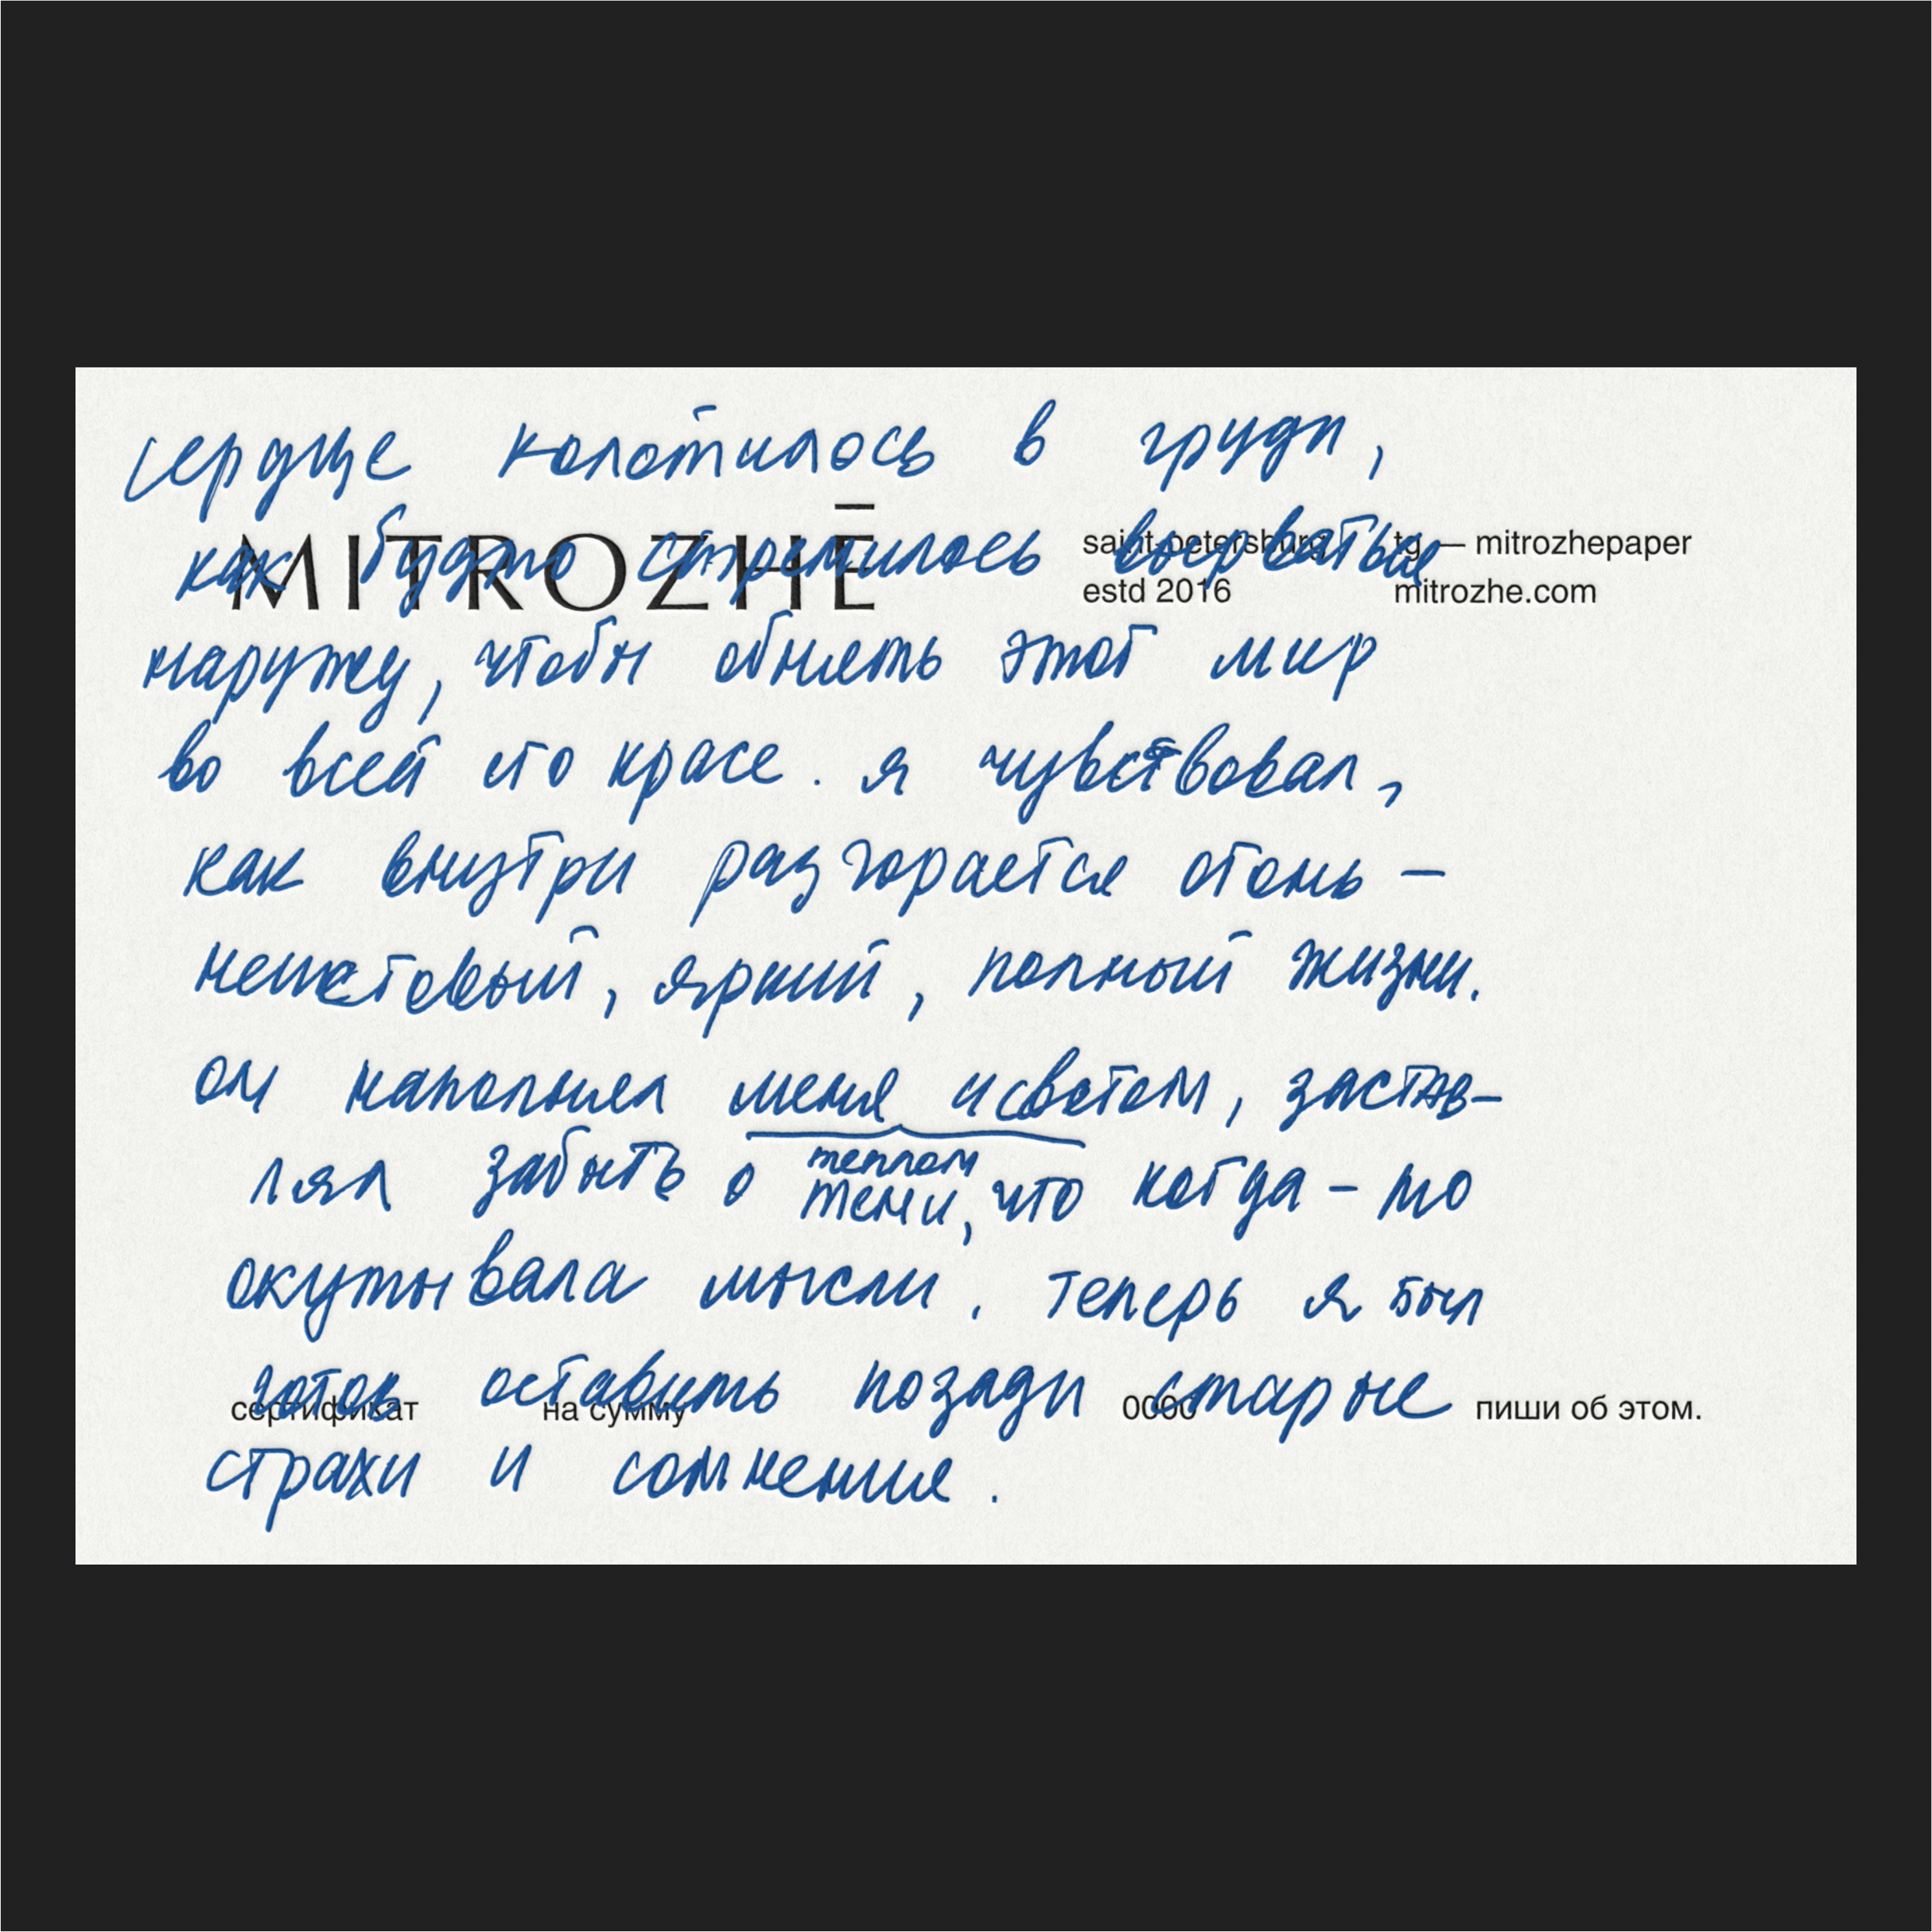 сердце колотилось в груди,
MITROZHĒ
saint-petersburg
estd 2016
tg — mitrozhepaper
mitrozhe.com
как будто стремилось вырваться
наружу, чтобы обнять этот мир
во всей его красе. я чувствовал,
как внутри разгорается огонь –
неистовый, яркий, полный жизни.
он наполнял меня и светом, застав-
теплом
лял забыть о тени, что когда-то
окутывала мысли. теперь я был
готов оставить позади старые
сертификат на сумму 0000 пиши об этом.
страхи и сомнения.